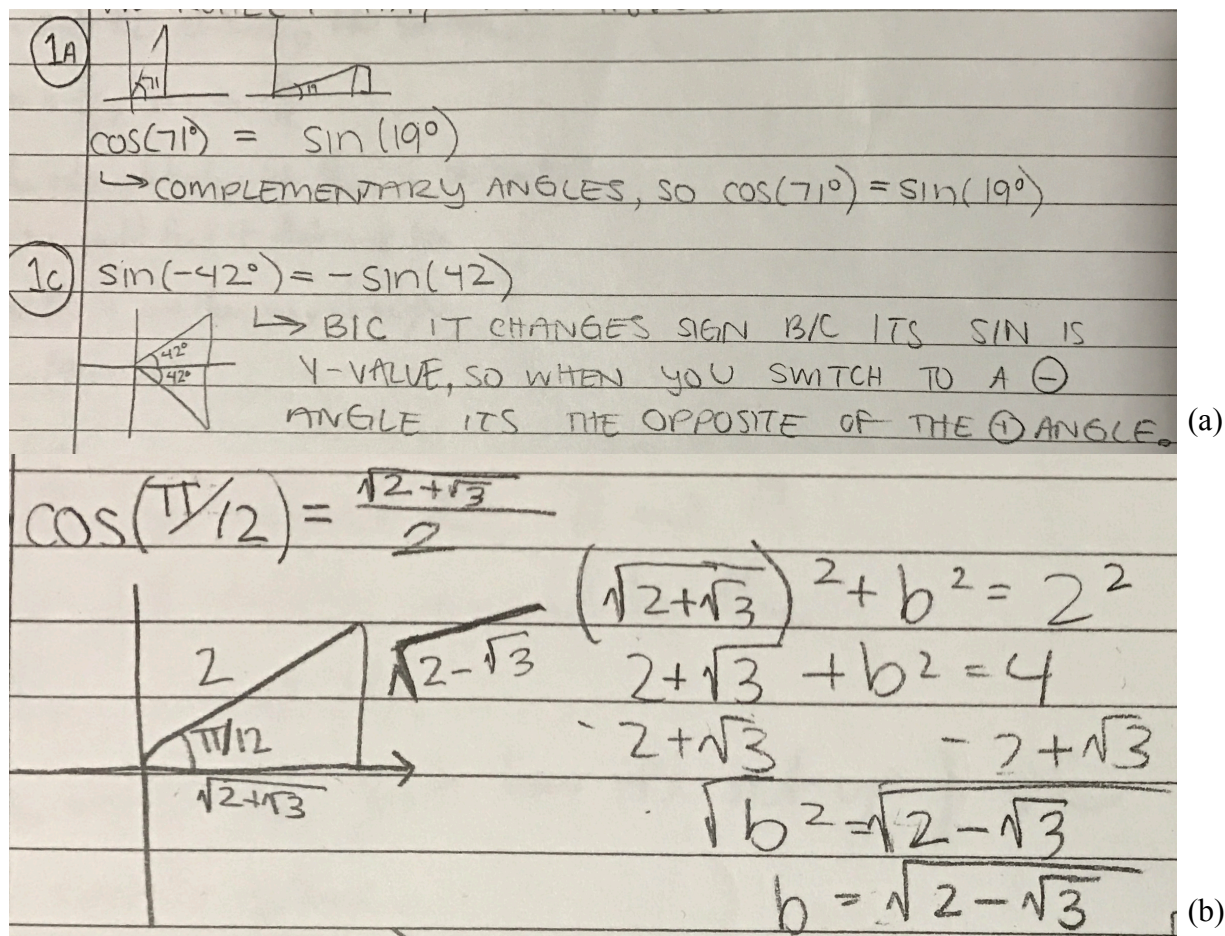 1A
71 19
cos(71°) = sin(19°)
↳ COMPLEMENTARY ANGLES, SO cos(71°) = sin(19°)
1C sin(-42°) = -sin(42)
↳ B/C IT CHANGES SIGN B/C ITS SIN IS
42°
42°
Y-VALUE, SO WHEN YOU SWITCH TO A ⊖
ANGLE ITS THE OPPOSITE OF THE ⊕ ANGLE.
(a)
cos(π/12) = √(2+√3)/2
2
√(2-√3)
π/12
√(2+√3)
(√(2+√3))² + b² = 2²
2+√3 + b² = 4
-2+√3 -2+√3
√b² = √(2-√3)
b = √(2-√3)
(b)